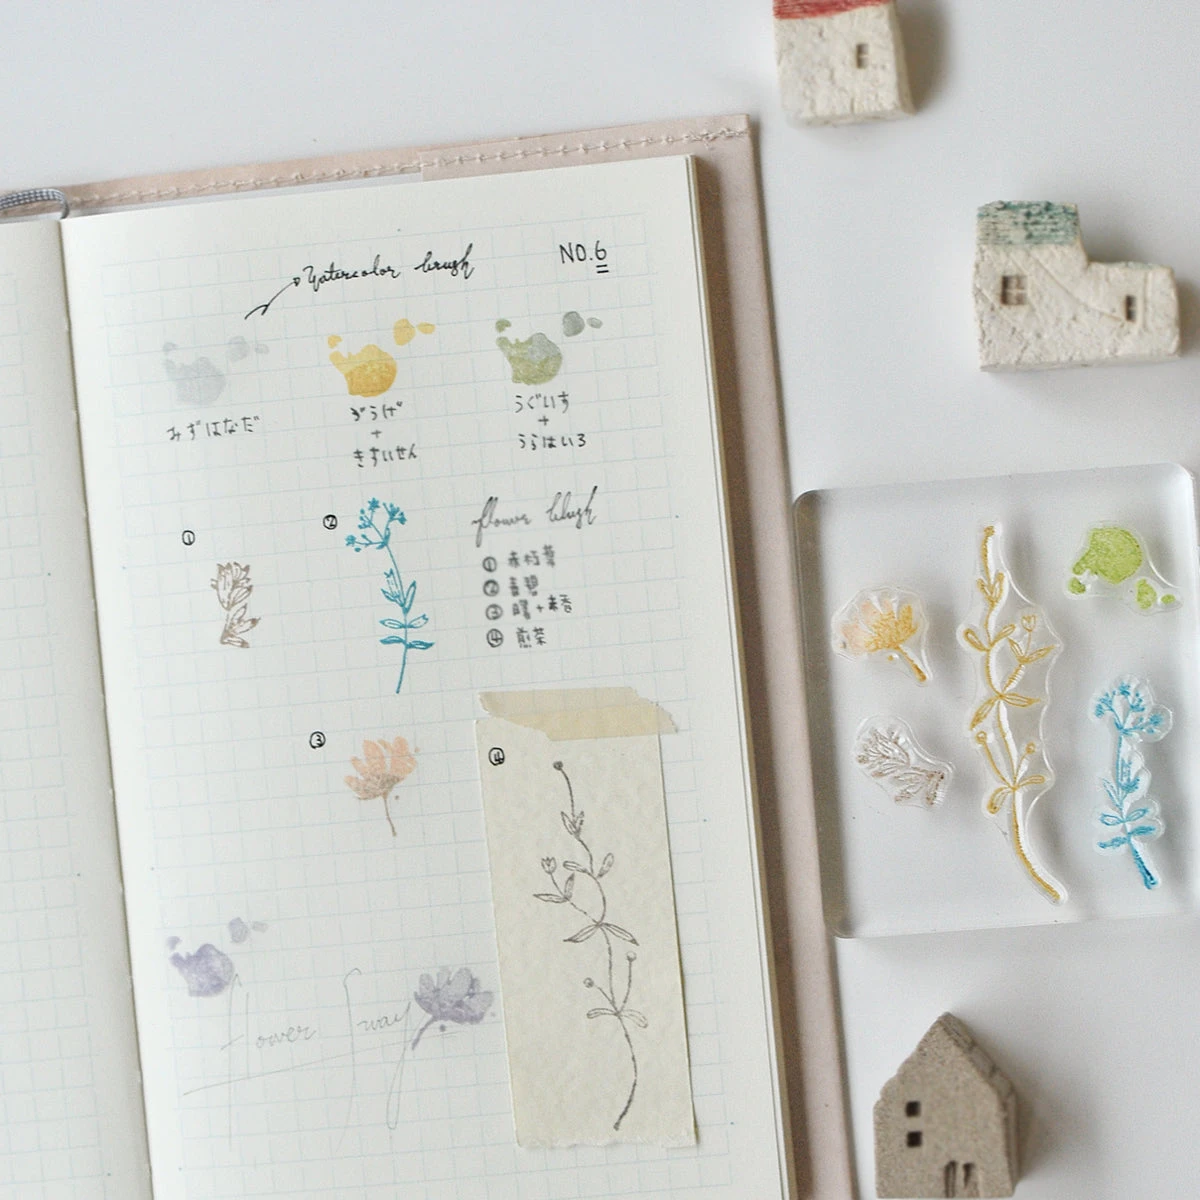 Watercolor brush
NO.6
みずはなだ
ぞうげ
+
きすいせん
うぐいす
+
うらはいろ
①
②
flower blush
① 赤朽葉
② 青碧
③ 曙+木香
④ 煎茶
③
④
flower Sway